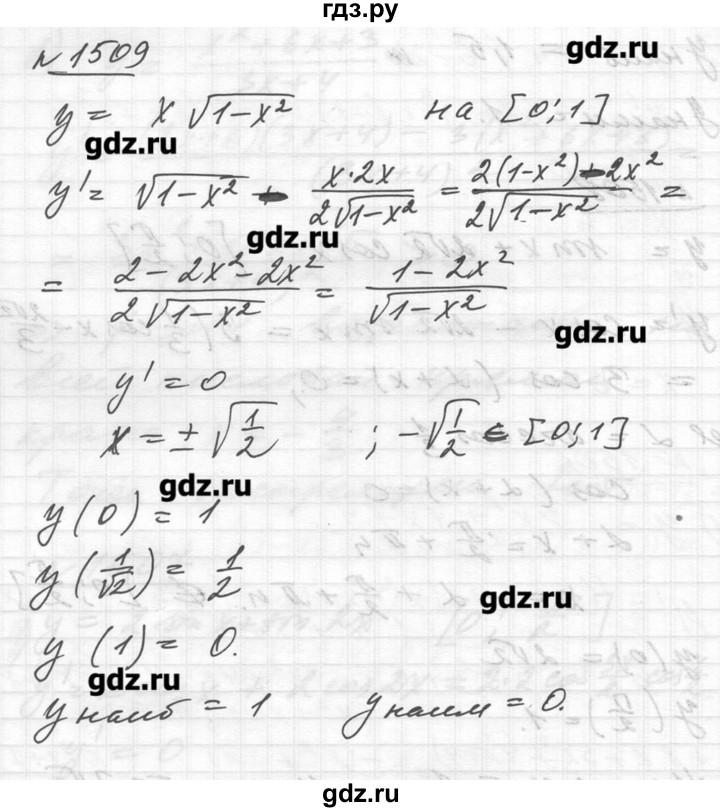 гдз.ру
№ 1509
gdz.ru
y = x √(1-x²) на [0; 1]
gdz.ru
y' = √(1-x²) - x·2x / 2√(1-x²) = 2(1-x²) - 2x² / 2√(1-x²) =
gdz.ru
= 2 - 2x² - 2x² / 2√(1-x²) = 1 - 2x² / √(1-x²)
gdz.ru
y' = 0
x = ± √(1/2) ; -√(1/2) ∈ [0; 1]
gdz.ru
y(0) = 1
y(1/√2) = 1/2
gdz.ru
y(1) = 0.
gdz.ru
y наиб = 1 y наим = 0.
gdz.ru